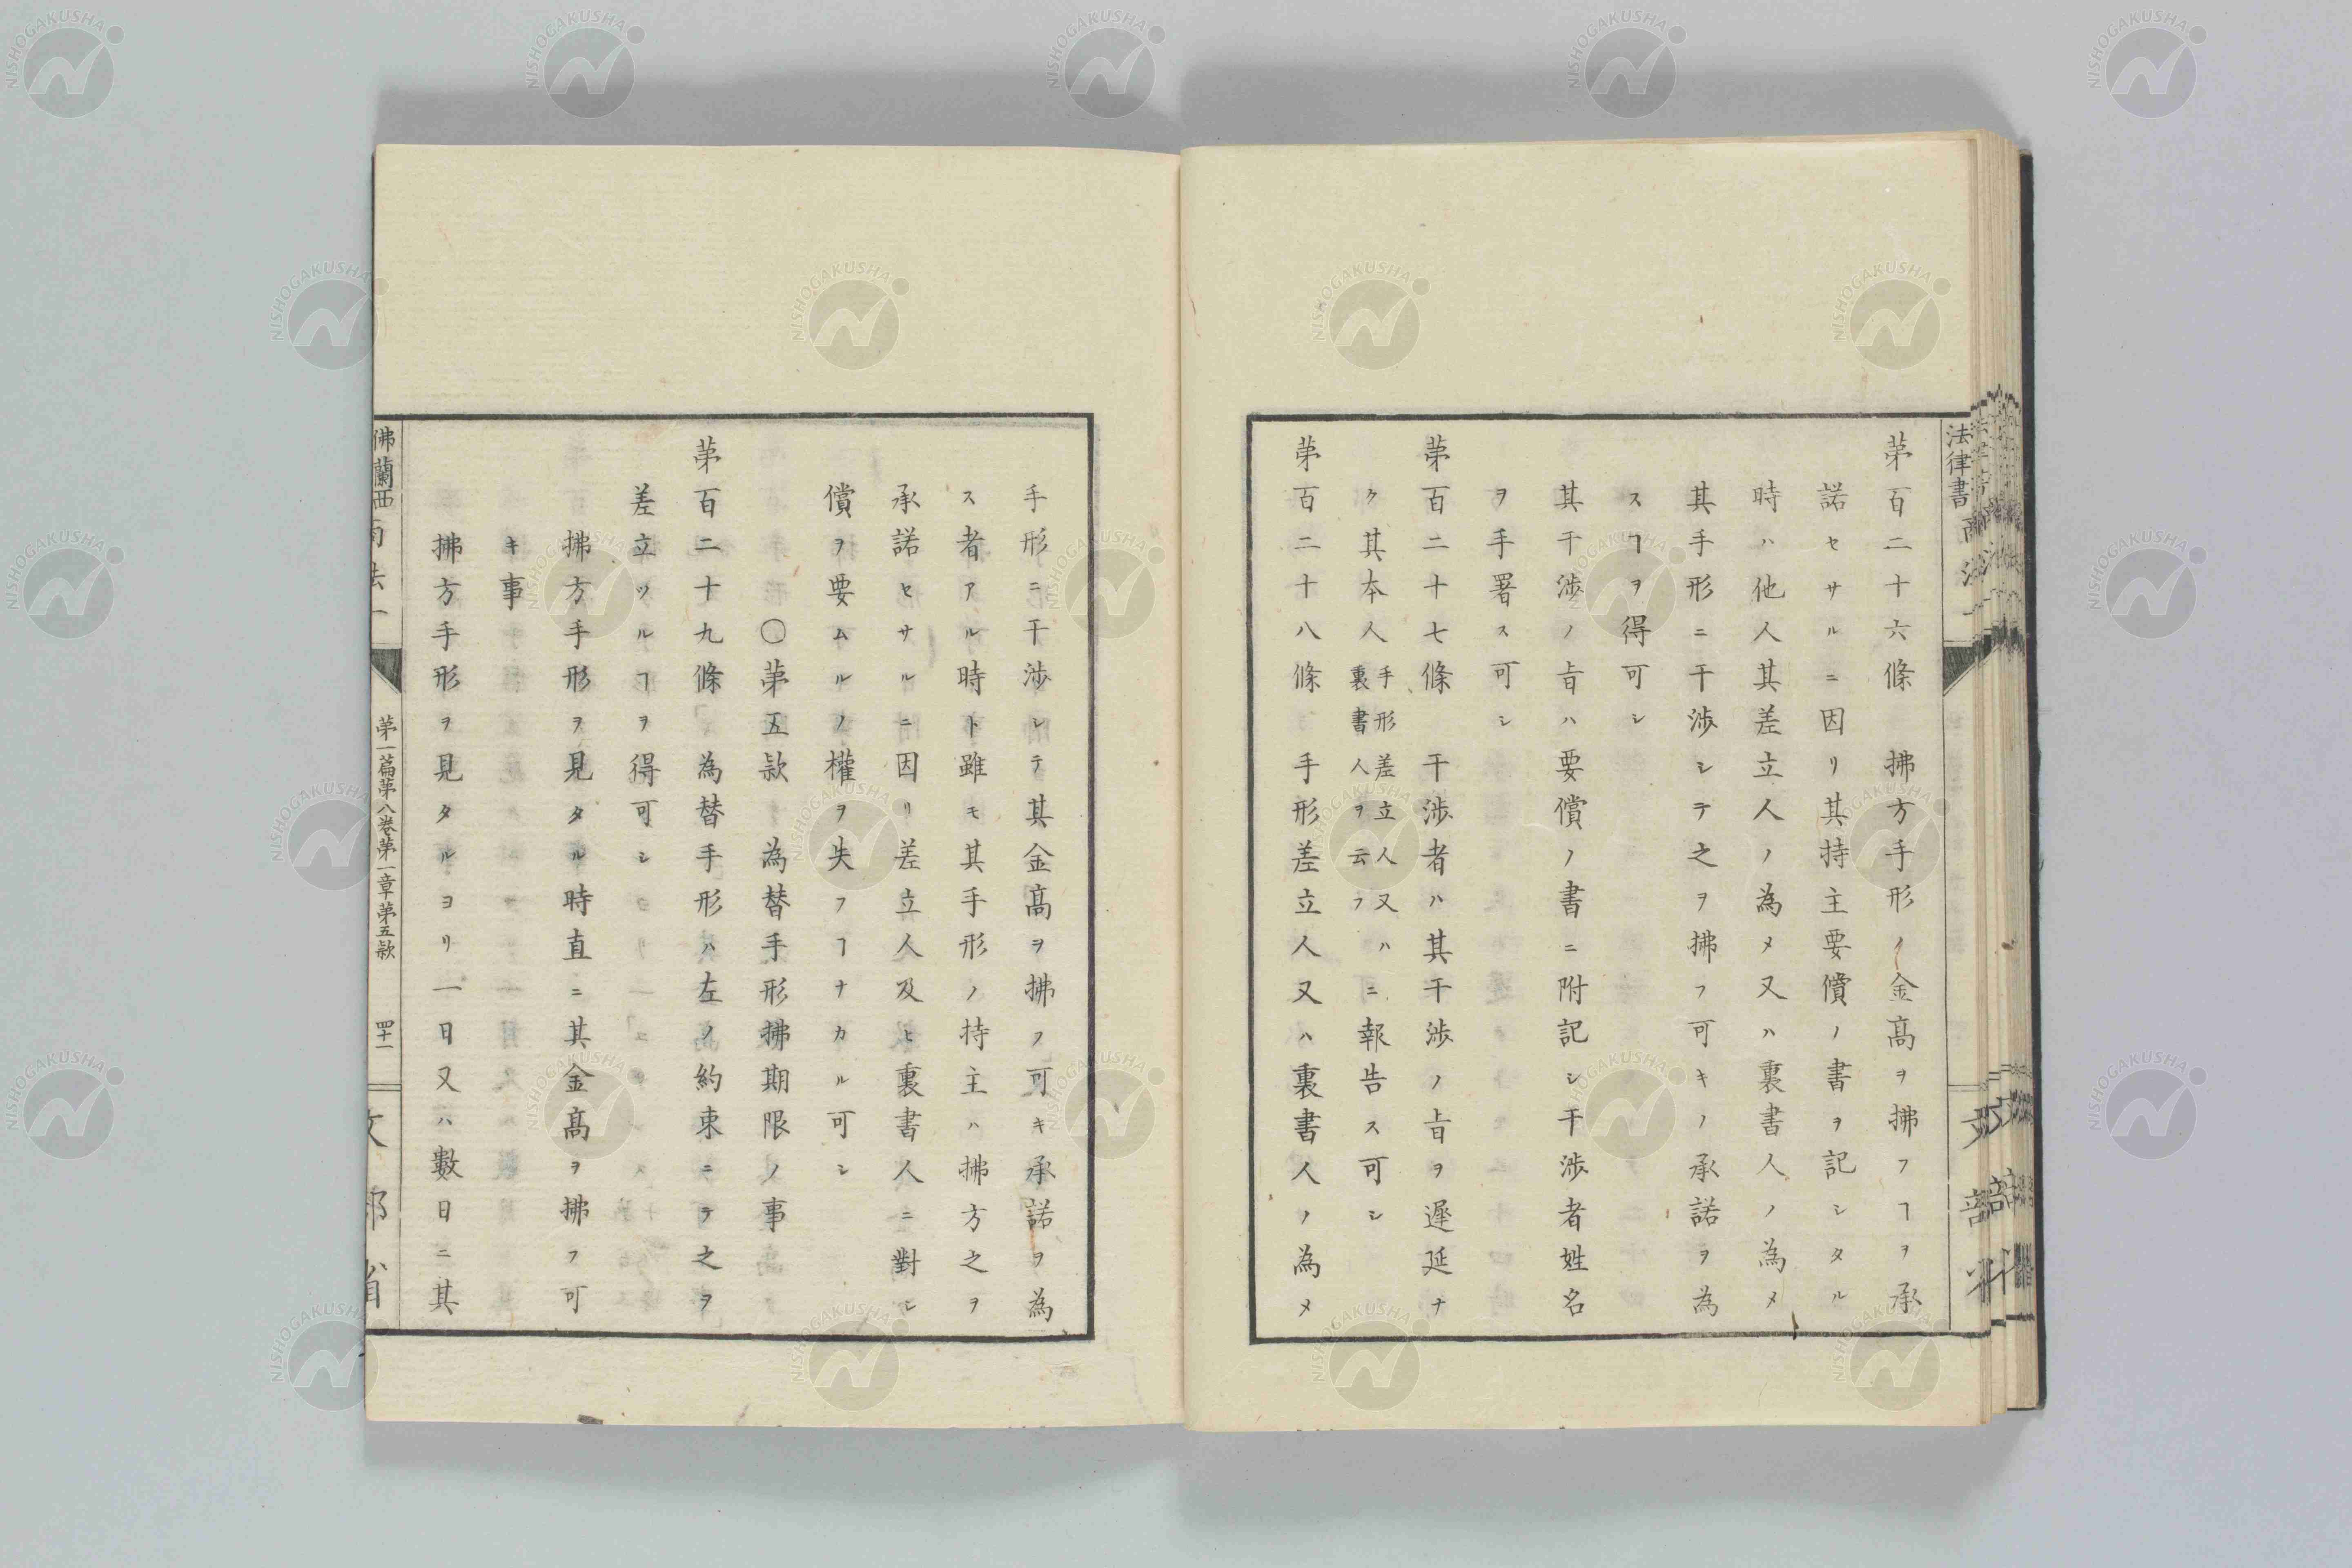 第百二十六條　拂方手形ノ金高ヲ拂フヿヲ承
諾セサルニ因リ其持主要償ノ書ヲ記シタル
時ハ他人其差立人ノ為メ又ハ裏書人ノ為メ
其手形ニ干渉シテ之ヲ拂フ可キノ承諾ヲ為
スヿヲ得可シ
其干渉ノ旨ハ要償ノ書ニ附記シ干渉者姓名
ヲ手署ス可シ
第百二十七條　干渉者ハ其干渉ノ旨ヲ遲延ナ
ク其本人手形差立人又ハ裏書人ヲ云フニ報告ス可シ
第百二十八條　手形差立人又ハ裏書人ノ為メ
法律書
商法一
手形ニ干渉シテ其金高ヲ拂フ可キ承諾ヲ為
ス者アル時ト雖モ其手形ノ持主ハ拂方之ヲ
承諾セサルニ因リ差立人及ヒ裏書人ニ對シ
償ヲ要ムルノ權ヲ失フヿナカル可シ
〇第五款　為替手形拂期限ノ事
第百二十九條　為替手形ハ左ノ約束ニテ之ヲ
差立ツルヿヲ得可シ
拂方手形ヲ見タル時直ニ其金高ヲ拂フ可
キ事
拂方手形ヲ見タルヨリ一日又ハ數日ニ其
佛蘭西商法一
第一篇第八卷第一章第五款
四十一
文部省
NISHOGAKUSHA